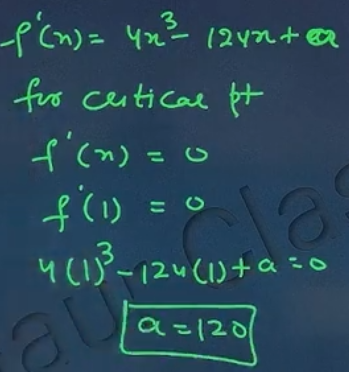 f'(x) = 4x³ - 124x + a
for critical pt
f'(x) = 0
f'(1) = 0
4(1)³ - 124(1) + a = 0
a = 120